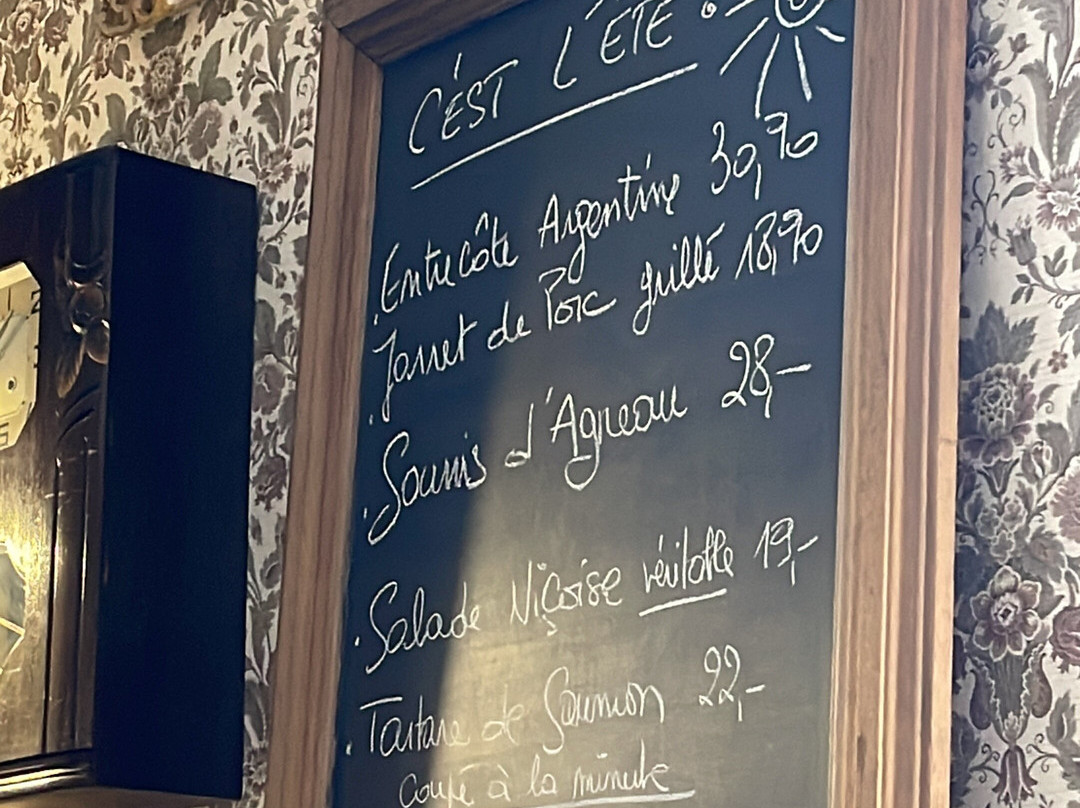 C'EST L'ÉTÉ
. Entrecôte Argentine 30,90
. Jarret de Porc grillé 18,90
. Souris d'Agneau 28,-
. Salade Niçoise véritable 19,-
. Tartare de Saumon 22,-
coupé à la minute